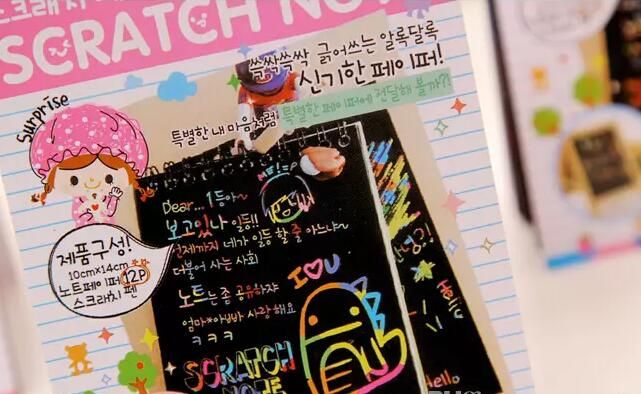 스크래치
SCRATCH NO
쓱싹쓱싹 긁어쓰는 알록달록
신기한 페이퍼!
특별한 내 마음처럼! 특별한 페이퍼에 전달해 볼까?!
Surprise
Dear... 1등아~
보고있나 일등!!
언제까지 네가 일등 할 줄 아느냐~
더불어 사는 사회
노트는 좀 공유하자
엄마*아빠 사랑해요
ㅋㅋㅋ
I U
SCRATCH
NOTE
안녕?!
Hello
Hello
제품구성!
10cm×14cm
노트페이퍼 12P
스크래치 펜